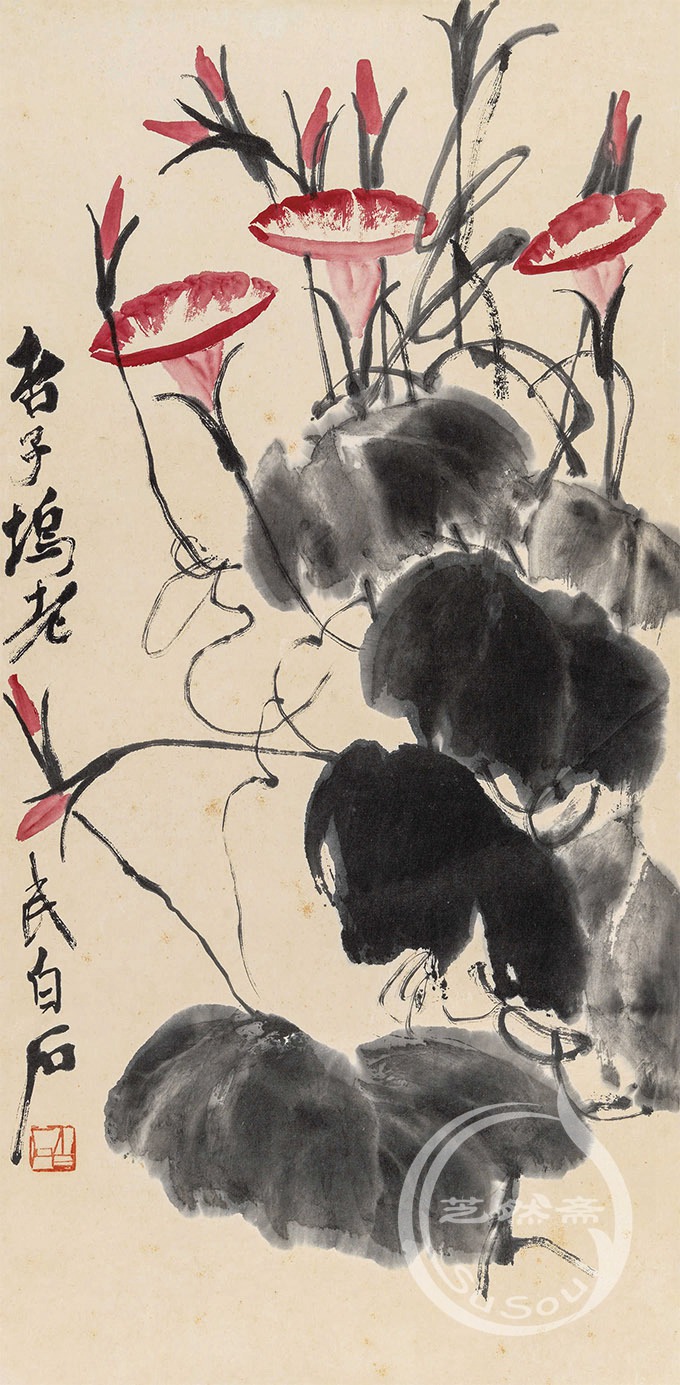 杏子坞老
民白石
芝然斋
SuSou